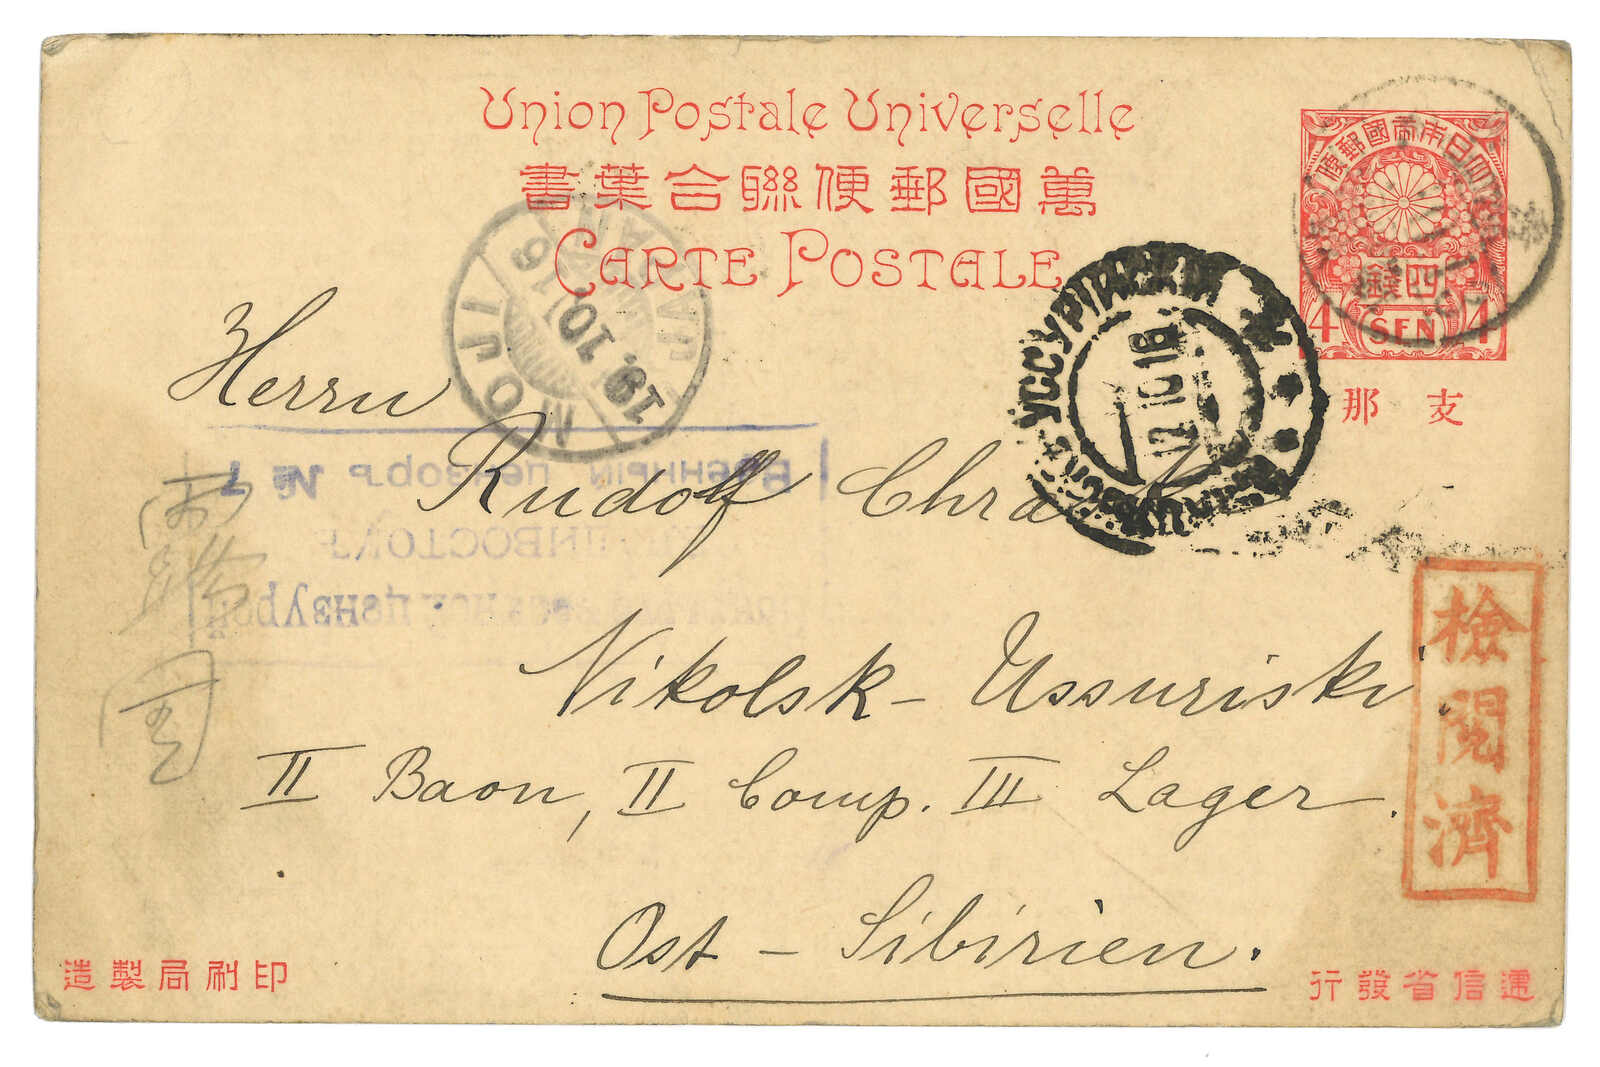 Union Postale Universelle
萬國郵便聯合葉書
CARTE POSTALE
大日本帝國郵便
四錢
4 SEN 4
支那
MOJI
19.10.16
JAPAN
УССУРІЙСКІЙ
12 10 16
Herrn
Rudolf
Военный цензоръ № 7
ВЛАДИВОСТОКЪ
военной цензурой
Nikolsk-Ussuriski
II Baon, II Comp. III Lager.
Ost-Sibirien.
檢閲濟
印刷局製造
逓信省發行